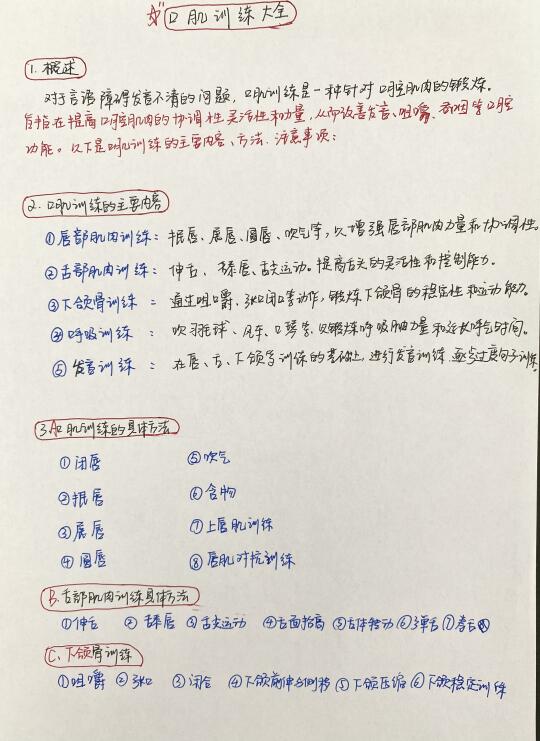 口肌训练大全
1. 概述
对于言语障碍发音不清的问题，口肌训练是一种针对口腔肌肉的锻炼。
旨在提高口腔肌肉的协调性灵活性和力量，从而改善发音、咀嚼、吞咽等口腔
功能。以下是口肌训练的主要内容、方法、注意事项：
2. 口肌训练的主要内容
①唇部肌肉训练：抿唇、展唇、圆唇、吹气等，以增强唇部肌肉力量和协调性。
②舌部肌肉训练：伸舌、舔唇、舌尖运动。提高舌头的灵活性和控制能力。
③下颌骨训练：通过咀嚼、张口闭口等动作，锻炼下颌骨的稳定性和运动能力。
④呼吸训练：吹羽毛球、风车、口琴等，以锻炼呼吸肌力量和延长呼气时间。
⑤发音训练：在唇、舌、下颌等训练的基础上，进行发音训练，逐步过度句子训练。
3.A口肌训练的具体方法
①闭唇 ⑤吹气
②抿唇 ⑥含物
③展唇 ⑦上唇肌训练
④圆唇 ⑧唇肌对抗训练
B.舌部肌肉训练具体方法
①伸舌 ②舔唇 ③舌尖运动 ④舌面抬高 ⑤舌体转动 ⑥弹舌 ⑦卷舌
C.下颌骨训练
①咀嚼 ②张口 ③闭合 ④下颌前伸与侧移 ⑤下颌压缩 ⑥下颌稳定训练